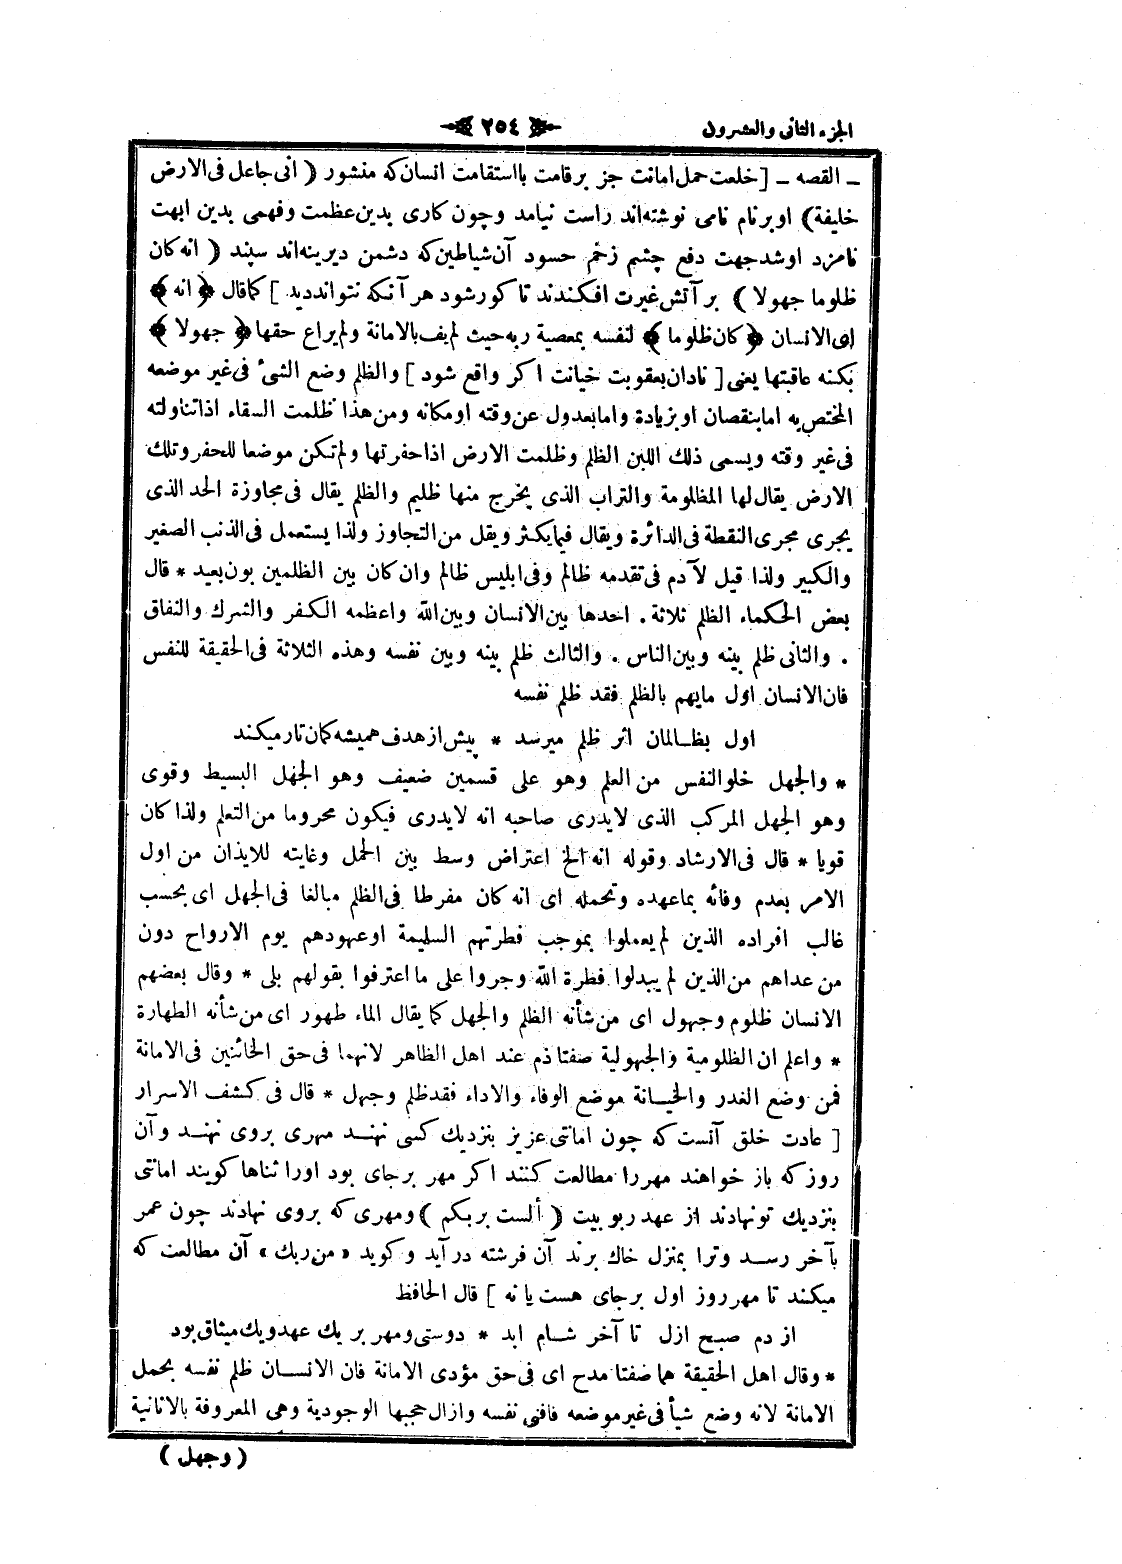 الجزء الثانى والعشرون
٢٥٤
ـ القصه ـ [خلعت حمل امانت جز برقامت بااستقامت انسان كه منشور ( انى جاعل فى الارض
خليفة) او برنام نامى نوشته‌اند راست نيامد وچون كارى بدين عظمت وفهمى بدين ابهت
نامزد او شد جهت دفع چشم زخم حسود آن شياطين كه دشمن ديرينه‌اند سپند ( انه كان
ظلوما جهولا ) بر آتش غيرت افكندند تا كور شود هر آنكه نتواند ديد ] كما قال ﴿ انه ﴾
اى الانسان ﴿ كان ظلوما ﴾ لنفسه بمعصية ربه حيث لم يف بالامانة ولم يراع حقها ﴿ جهولا ﴾
بكنه عاقبتها يعنى [ نادان بعقوبت خيانت اكر واقع شود ] والظلم وضع الشئ فى غير موضعه
المختص به اما بنقصان او بزيادة واما بعدول عن وقته او مكانه ومن هذا ظلمت السقاء اذا تناولته
فى غير وقته ويسمى ذلك اللبن الظلم وظلمت الارض اذا حفرتها ولم تكن موضعا للحفر وتلك
الارض يقال لها المظلومة والتراب الذى يخرج منها ظليم والظلم يقال فى مجاوزة الحد الذى
يجرى مجرى النقطة فى الدائرة ويقال فيما يكثر ويقل من التجاوز ولذا يستعمل فى الذنب الصغير
والكبير ولذا قيل لآدم فى تقدمه ظالم وفى ابليس ظالم وان كان بين الظلمين بون بعيد * قال
بعض الحكماء الظلم ثلاثة . احدها بين الانسان وبين الله واعظمه الكفر والشرك والنفاق
. والثانى ظلم بينه وبين الناس . والثالث ظلم بينه وبين نفسه وهذه الثلاثة فى الحقيقة للنفس
فان الانسان اول مايهم بالظلم فقد ظلم نفسه
اول بظالمان اثر ظلم ميرسد * پيش از هدف هميشه كمان تار ميكند
* والجهل خلو النفس من العلم وهو على قسمين ضعيف وهو الجهل البسيط وقوى
وهو الجهل المركب الذى لايدرى صاحبه انه لايدرى فيكون محروما من التعلم ولذا كان
قويا * قال فى الارشاد وقوله انه الخ اعتراض وسط بين الحمل وغايته للايذان من اول
الامر بعدم وفائه بما عهده وتحمله اى انه كان مفرطا فى الظلم مبالغا فى الجهل اى بحسب
غالب افراده الذين لم يعملوا بموجب فطرتهم السليمة او عهودهم يوم الارواح دون
من عداهم من الذين لم يبدلوا فطرة الله وجروا على ما اعترفوا بقولهم بلى * وقال بعضهم
الانسان ظلوم وجهول اى من شأنه الظلم والجهل كما يقال الماء طهور اى من شأنه الطهارة
* واعلم ان الظلومية والجهولية صفتا ذم عند اهل الظاهر لانهما فى حق الخائنين فى الامانة
فمن وضع الغدر والخيانة موضع الوفاء والاداء فقد ظلم وجهل * قال فى كشف الاسرار
[ عادت خلق آنست كه چون امانتى عزيز بنزديك كسى نهند مهرى بروى نهند وآن
روز كه باز خواهند مهر را مطالعت كنند اكر مهر برجاى بود اورا ثناها كويند امانتى
بنزديك تو نهادند از عهد ربوبيت ( ألست بربكم ) ومهرى كه بروى نهادند چون عمر
بآخر رسد وترا بمنزل خاك برند آن فرشته در آيد وكويد «من ربك» آن مطالعت كه
ميكند تا مهر روز اول برجاى هست يا نه ] قال الحافظ
از دم صبح ازل تا آخر شام ابد * دوستى ومهر بر يك عهد ويك ميثاق بود
* وقال اهل الحقيقة هما صفتا مدح اى فى حق مؤدى الامانة فان الانسان ظلم نفسه بحمل
الامانة لانه وضع شيأ فى غير موضعه فافنى نفسه وازال حجبها الوجودية وهى المعروفة بالانانية
( وجهل )